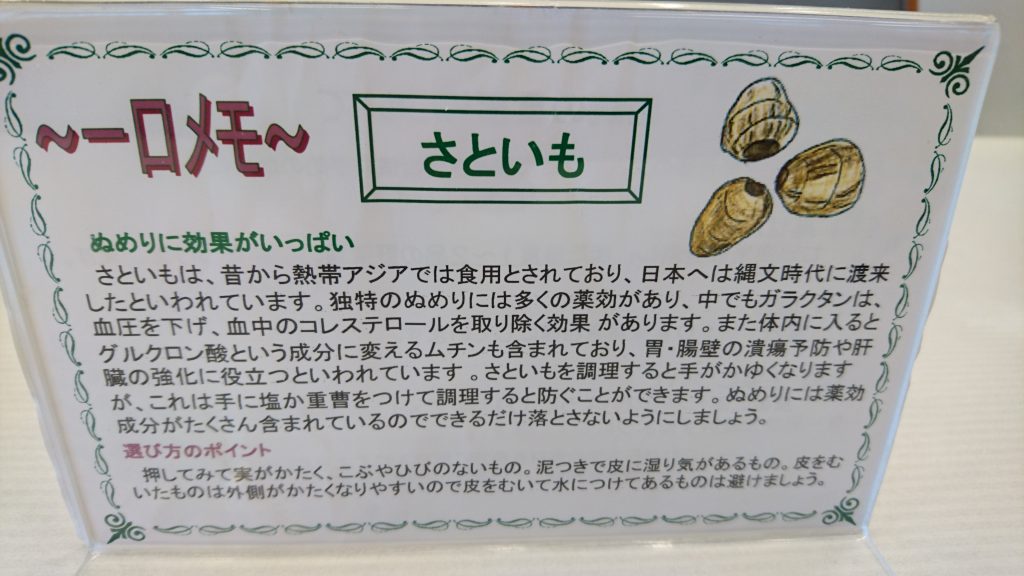 ~一口メモ~
さといも
ぬめりに効果がいっぱい
さといもは、昔から熱帯アジアでは食用とされており、日本へは縄文時代に渡来
したといわれています。独特のぬめりには多くの薬効があり、中でもガラクタンは、
血圧を下げ、血中のコレステロールを取り除く効果 があります。また体内に入ると
グルクロン酸という成分に変えるムチンも含まれており、胃・腸壁の潰瘍予防や肝
臓の強化に役立つといわれています 。さといもを調理すると手がかゆくなります
が、これは手に塩か重曹をつけて調理すると防ぐことができます。ぬめりには薬効
成分がたくさん含まれているのでできるだけ落とさないようにしましょう。
選び方のポイント
押してみて実がかたく、こぶやひびのないもの。泥つきで皮に湿り気があるもの。皮をむ
いたものは外側がかたくなりやすいので皮をむいて水につけてあるものは避けましょう。